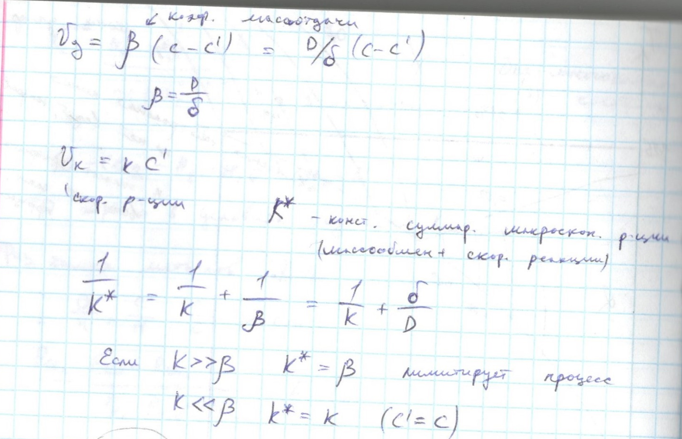 ↙ коэф. массоотдачи
V_д = β (c - c') = D/δ (c - c')
β = D/δ
V_к = к c'
скор. р-ции
K* - конст. суммар. макроскоп. р-ции
(массообмен + скор. реакции)
1/K* = 1/K + 1/β = 1/K + δ/D
Если K >> β K* = β лимитирует процесс
K << β K* = K (c' = c)